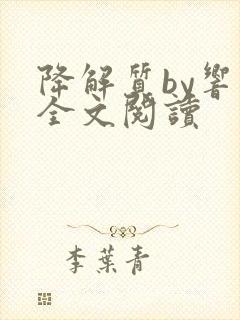 降解質by響
全文閱讀
李葉青